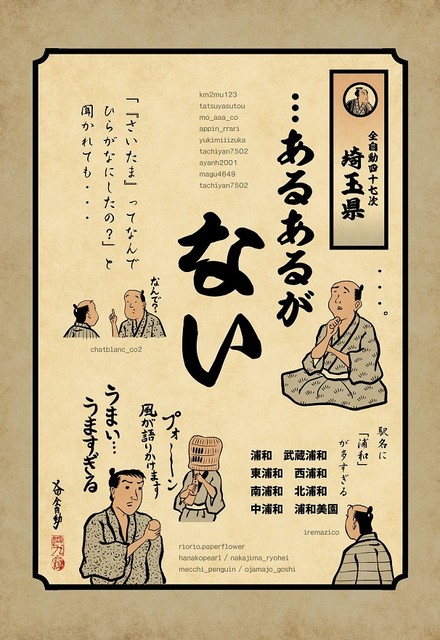 全自動四十七次
埼玉県
…あるあるが
ない
km2mu123
tatsuyasutou
mo_aaa_co
appin_rrari
yukimiiizuka
tachiyan7502
ayanh2001
magu4649
tachiyan7502
「『さいたま』ってなんで
ひらがなにしたの？」と
聞かれても・・・
なんで？
chatblanc_co2
・・・。
駅名に
「浦和」
が多すぎる
浦和　武蔵浦和
東浦和　西浦和
南浦和　北浦和
中浦和　浦和美園
iremazico
プォ〜ン
風が語りかけます
うまい…
うますぎる
riorio.paperflower
hanakopearl / nakajima_ryohei
mecchi_penguin / ojamajo_goshi